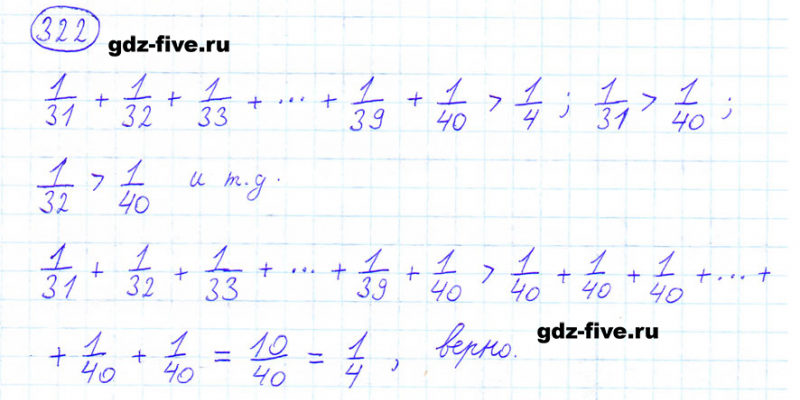 322 gdz-five.ru
1/31 + 1/32 + 1/33 + ... + 1/39 + 1/40 > 1/4 ; 1/31 > 1/40 ;
1/32 > 1/40 и т.д.
1/31 + 1/32 + 1/33 + ... + 1/39 + 1/40 > 1/40 + 1/40 + 1/40 + ... +
+ 1/40 + 1/40 = 10/40 = 1/4 , верно.
gdz-five.ru